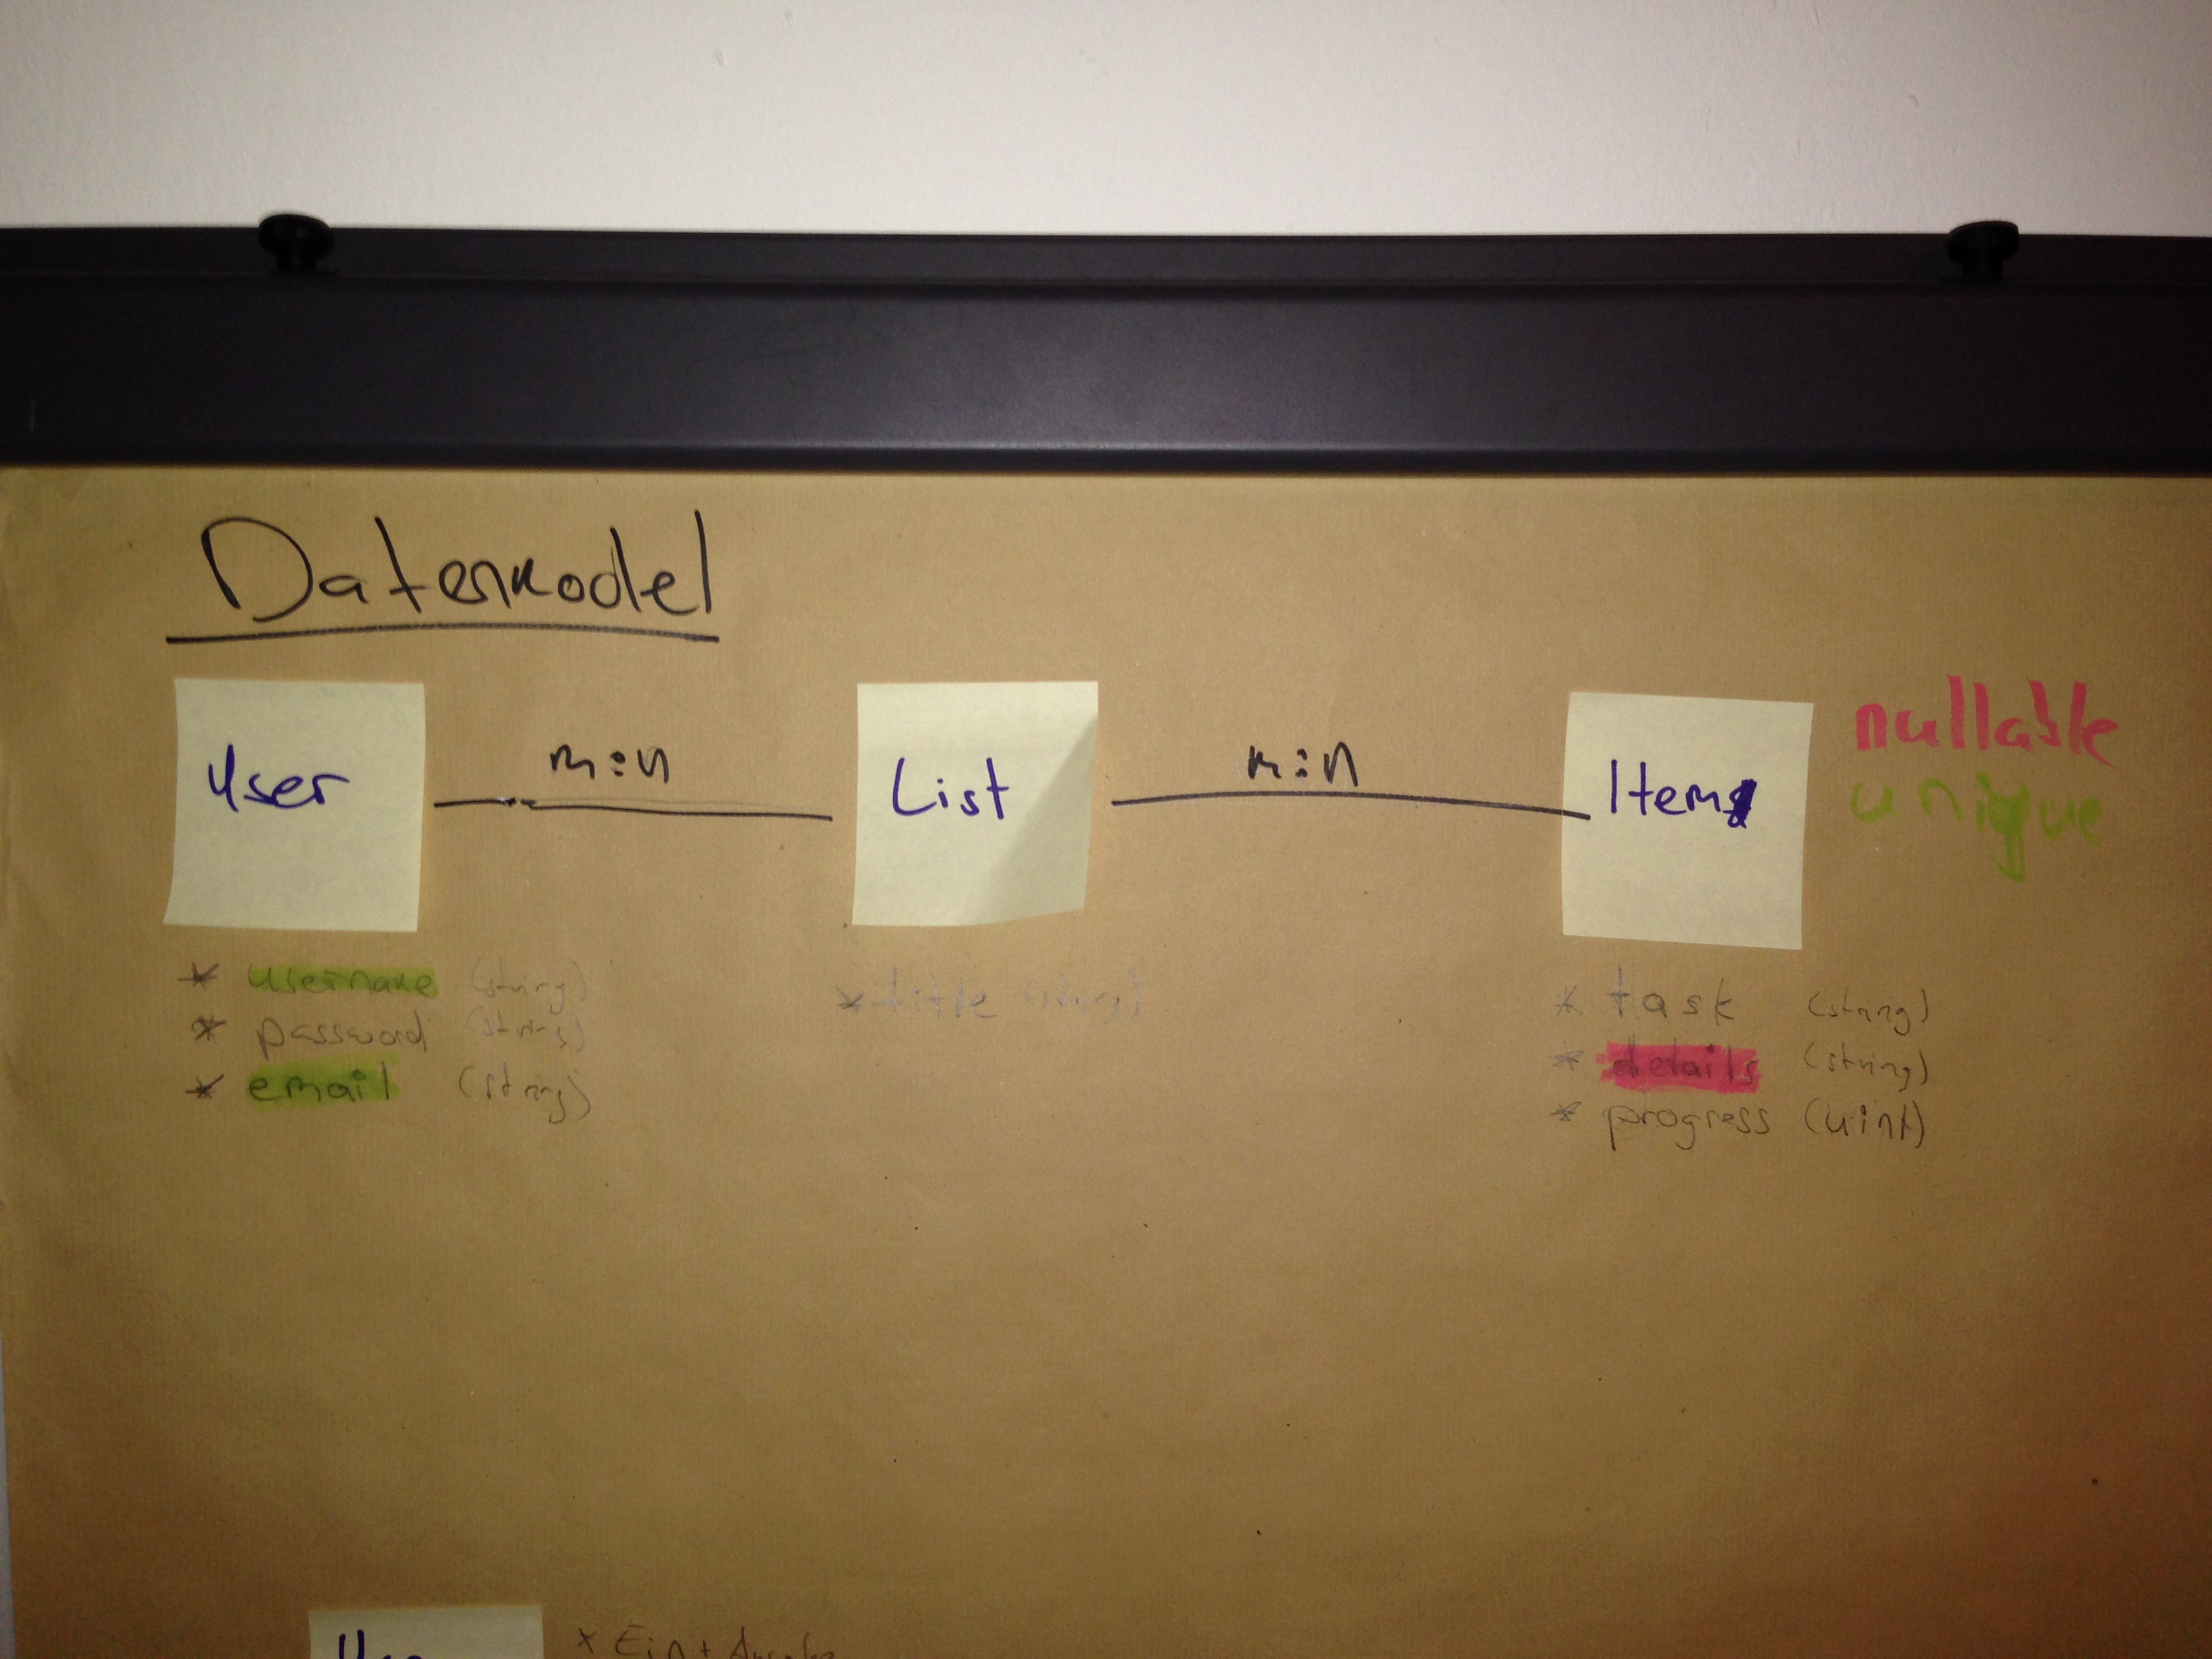 Datenmodel
User
m:n
List
m:n
Item
nullable
unique
* username (string)
* password (string)
* email (string)
* title (string)
* task (string)
* details (string)
* progress (uint)
* Ein +